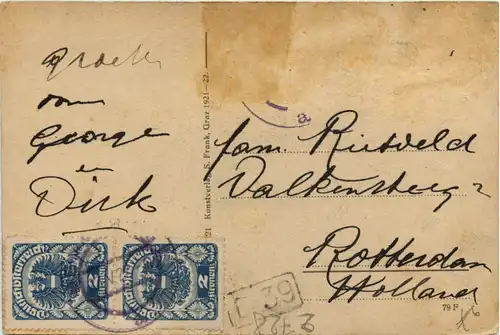 Groeten
van
George
en
Dirk
Kunstverlag S. Frank, Graz 1921-22.
a
fam. Rietveld
Valkensberg
Rotterdam
Holland
79 F
Deutschösterreich
2
Kronen
Deutschösterreich
2
Kronen
39